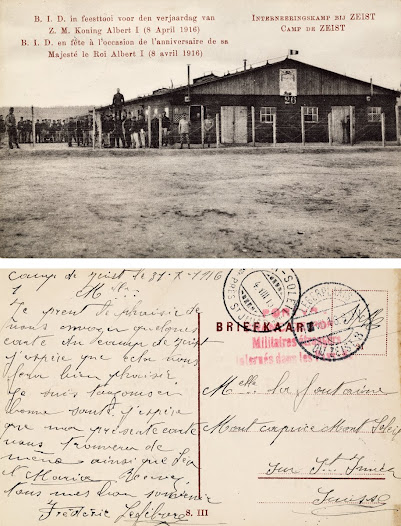 B. I. D. in feesttooi voor den verjaardag van
Z. M. Koning Albert I (8 April 1916)
B. I. D. en fête à l'occasion de l'anniversaire de sa
Majesté le Roi Albert I (8 avril 1916)
INTERNEERINGSKAMP BIJ ZEIST
CAMP DE ZEIST
26
Camp de Zeist le 31-X-1916
Mlle
Je prent de plaisir de
vous envoyer quelques
carte du camp de Zeist
j'espère que cela vous
fera bien plaisir
je suis toujours en
bonne santé j'espère
que ma présente carte
vous trouvera de
même ainsi que
et Maria
tous mes bon souvenir
Frédéric Lefébure
BRIEFKAART
Militaires
internés dans les
Melle La fontaine
Mont Soleil
Sur St Imier
Suisse
S. III